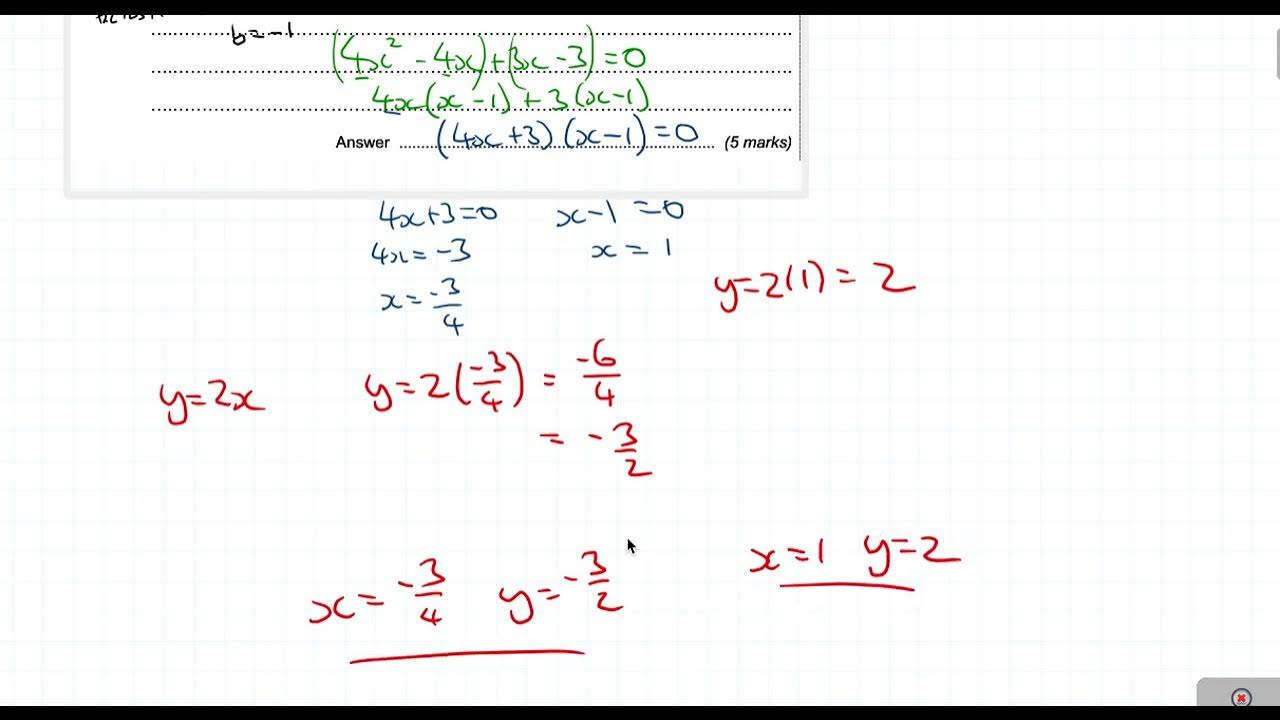 b=-1
(4x² - 4x)+(3x-3)=0
4x(x-1)+3(x-1)
Answer (4x+3)(x-1)=0 (5 marks)
4x+3=0 x-1=0
4x=-3 x=1
x=-3/4
y=2(1)=2
y=2x y=2(-3/4)=-6/4
=-3/2
x=-3/4 y=-3/2 x=1 y=2